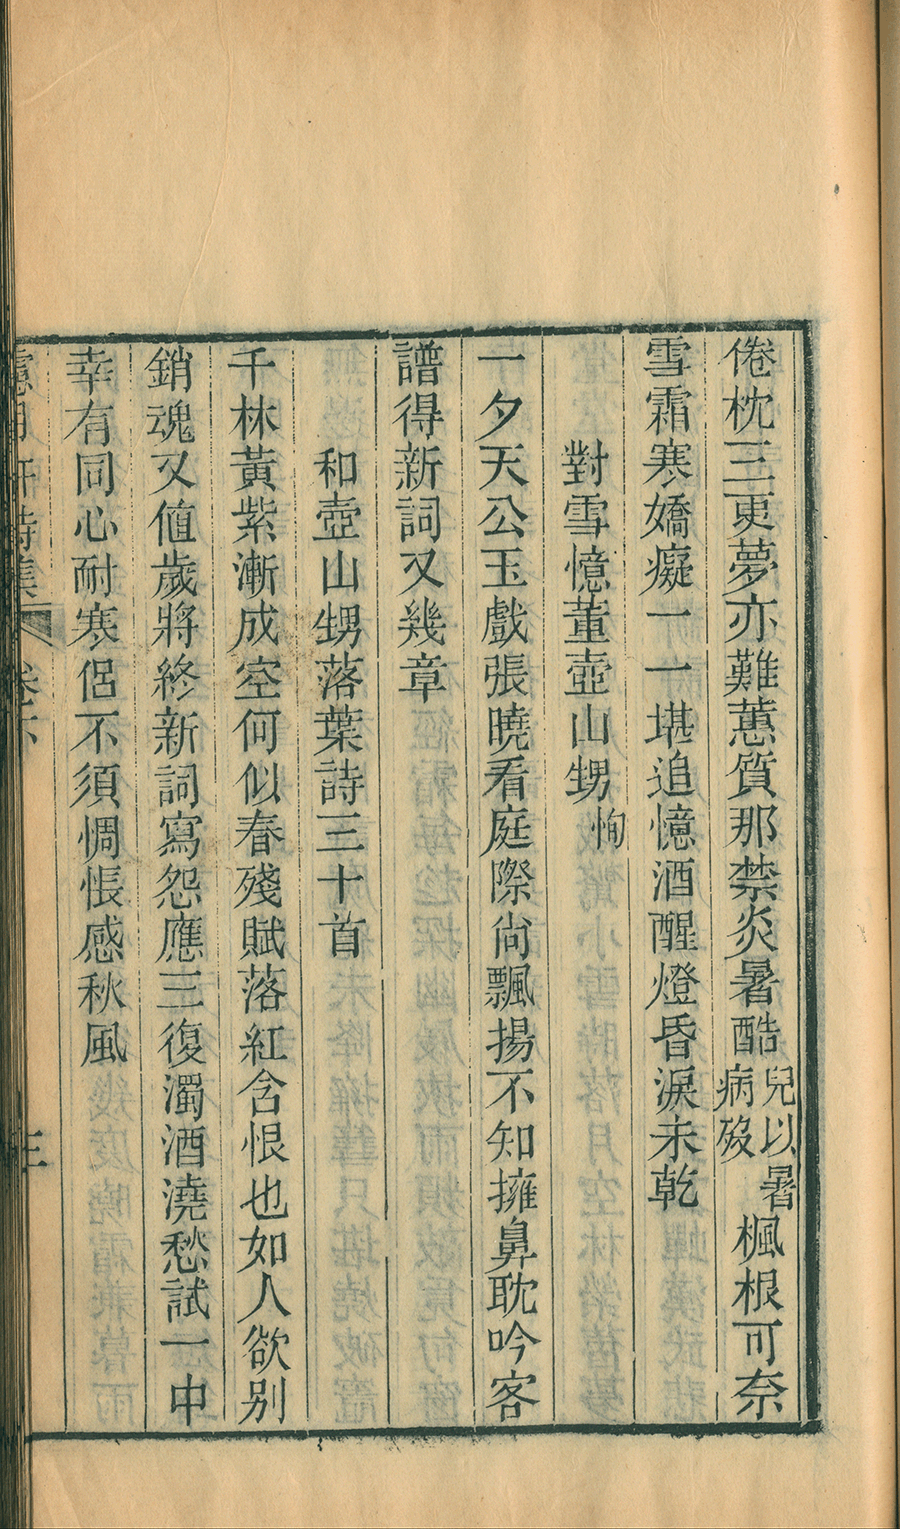 倦枕三更夢亦難蕙質那禁炎暑酷兒以暑病歿楓根可奈
雪霜寒嬌癡一一堪追憶酒醒燈昏淚未乾
對雪憶董壺山甥恂
一夕天公玉戲張曉看庭際尚飄揚不知擁鼻耽吟客
譜得新詞又幾章
和壺山甥落葉詩三十首
千林黃紫漸成空何似春殘賦落紅含恨也如人欲別
銷魂又値歲將終新詞寫怨應三復濁酒澆愁試一中
幸有同心耐寒侶不須惆悵感秋風
月軒詩集 卷下